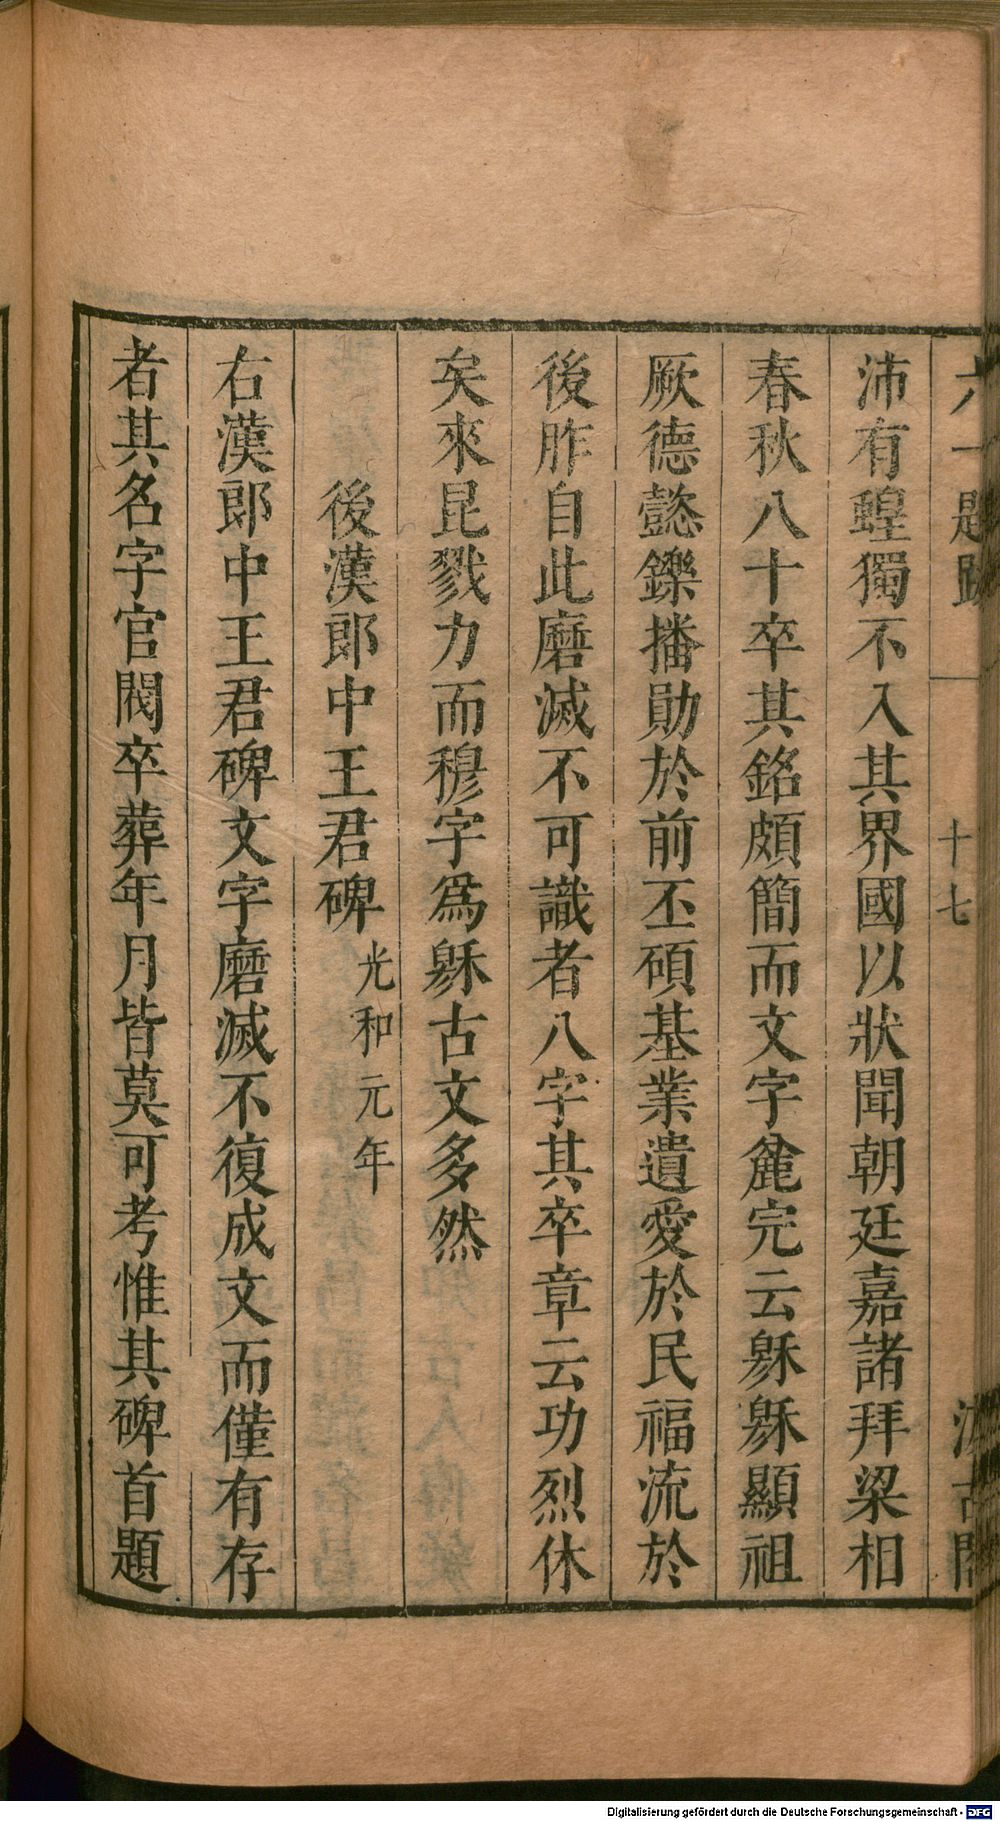 六一題跋 十七 汲古閣
沛有蝗獨不入其界國以狀聞朝廷嘉諸拜梁相
春秋八十卒其銘頗簡而文字麄完云顯祖
厥德懿鑠播勛於前丕碩基業遺愛於民福流於
後胙自此磨滅不可識者八字其卒章云功烈休
矣來昆戮力而穆字爲古文多然
後漢郎中王君碑 光和元年
右漢郎中王君碑文字磨滅不復成文而僅有存
者其名字官閥卒葬年月皆莫可考惟其碑首題
Digitalisierung gefördert durch die Deutsche Forschungsgemeinschaft - DFG